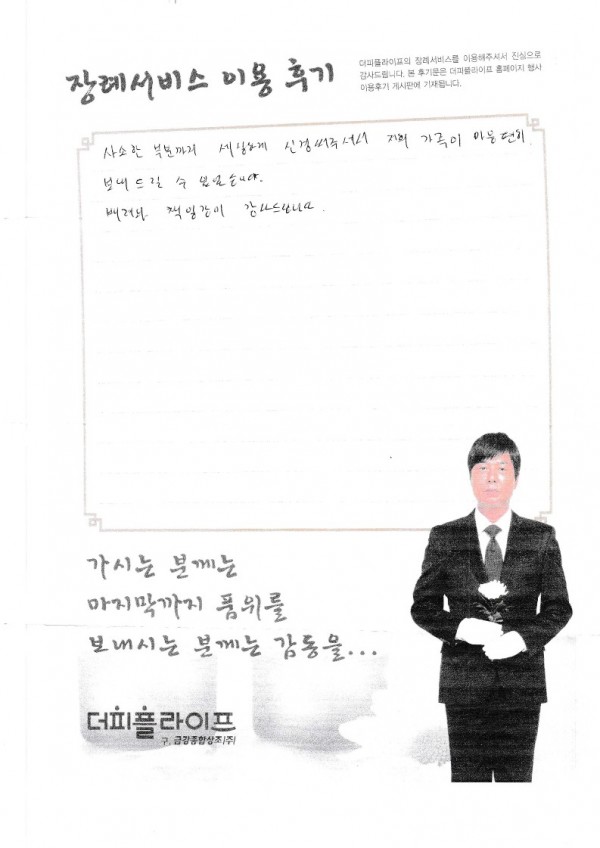 장례서비스 이용 후기
더피플라이프의 장례서비스를 이용해주셔서 진심으로
감사드립니다. 본 후기문은 더피플라이프 홈페이지 행사
이용후기 게시판에 기재됩니다.
사소한 부분까지 세심하게 신경써주셔서 저희 가족이 마음 편히
보내드릴 수 있었습니다.
배려와 책임감이 감사드립니다.
가시는 분께는
마지막까지 품위를
보내시는 분께는 감동을...
더피플라이프
구. 금강종합상조(주)